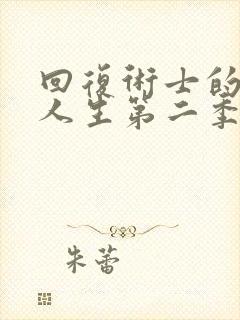 回復術士的
人生第二季
朱蕾